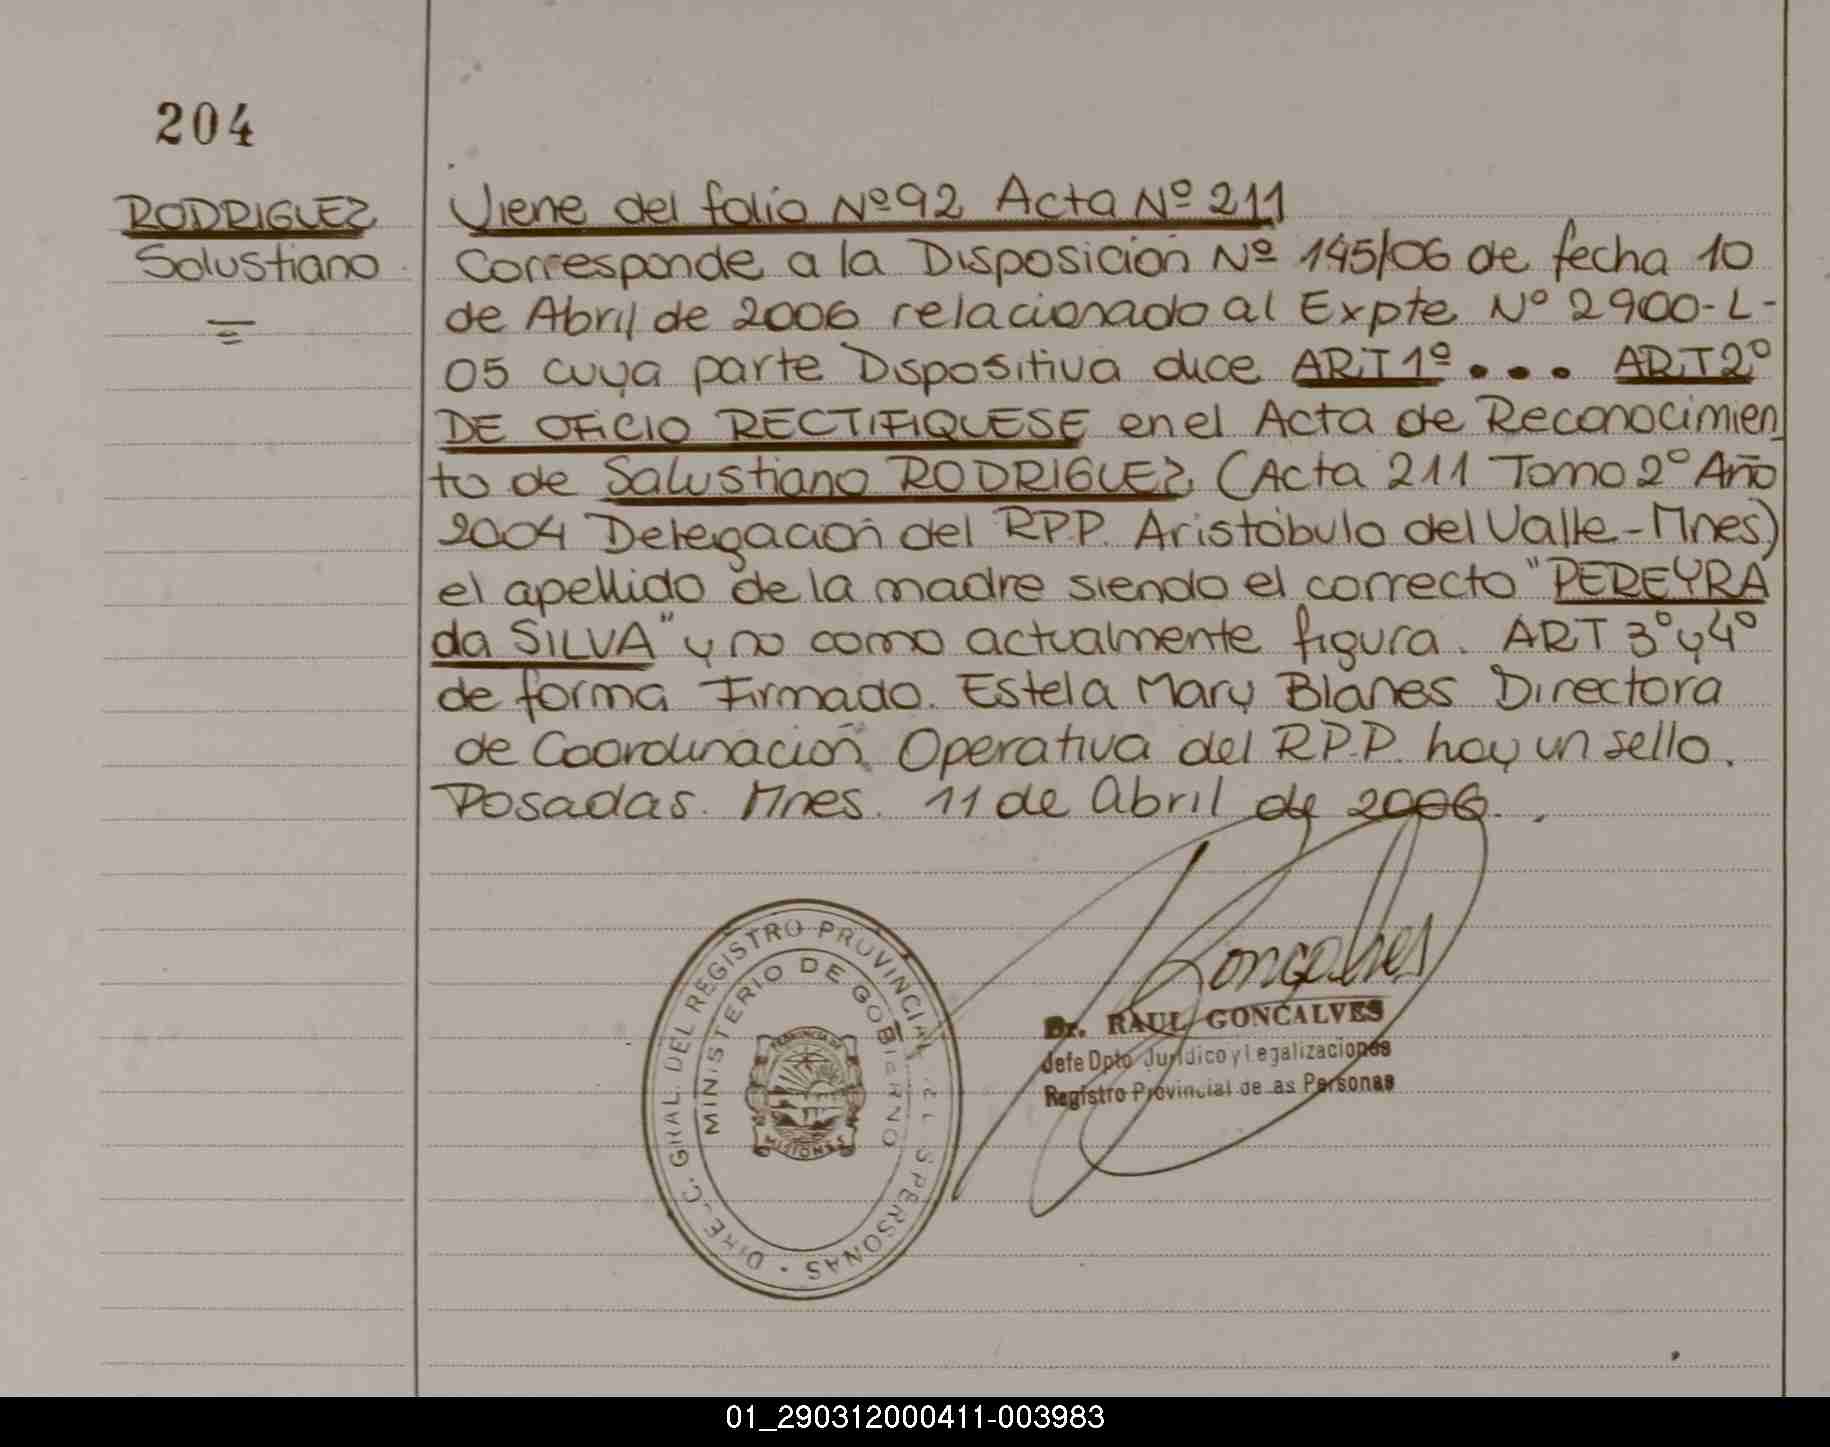 204
RODRIGUEZ
Salustiano
Viene del folio Nº 92 Acta Nº 211
Corresponde a la Disposición Nº 145/06 de fecha 10
de Abril de 2006 relacionado al Expte Nº 2900-L-
05 cuya parte Dspositiva dice ART 1º... ART 2º
DE OFICIO RECTIFIQUESE en el Acta de Reconocimien
to de Salustiano RODRIGUEZ, (Acta 211 Tomo 2º Año
2004 Delegación del R.P.P. Aristóbulo del Valle-Mnes)
el apellido de la madre siendo el correcto "PEREYRA
da SILVA" y no como actualmente figura. ART 3º y 4º
de forma Firmado. Estela Mary Blanes Directora
de Coordinación Operativa del R.P.P. hay un sello.
Posadas. Mnes. 11 de Abril de 2006.
DIREC. GRAL. DEL REGISTRO PROVINCIAL PERSONAS
MINISTERIO DE GOBIERNO
PROVINCIA DE
MISIONES
Goncalves
Dr. RAUL GONCALVES
Jefe Dpto Jurídico y Legalizaciones
Registro Provincial de as Personas
01_290312000411-003983